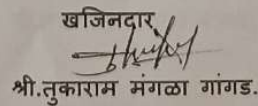 खजिनदार
श्री.तुकाराम मंगळा गांगड.